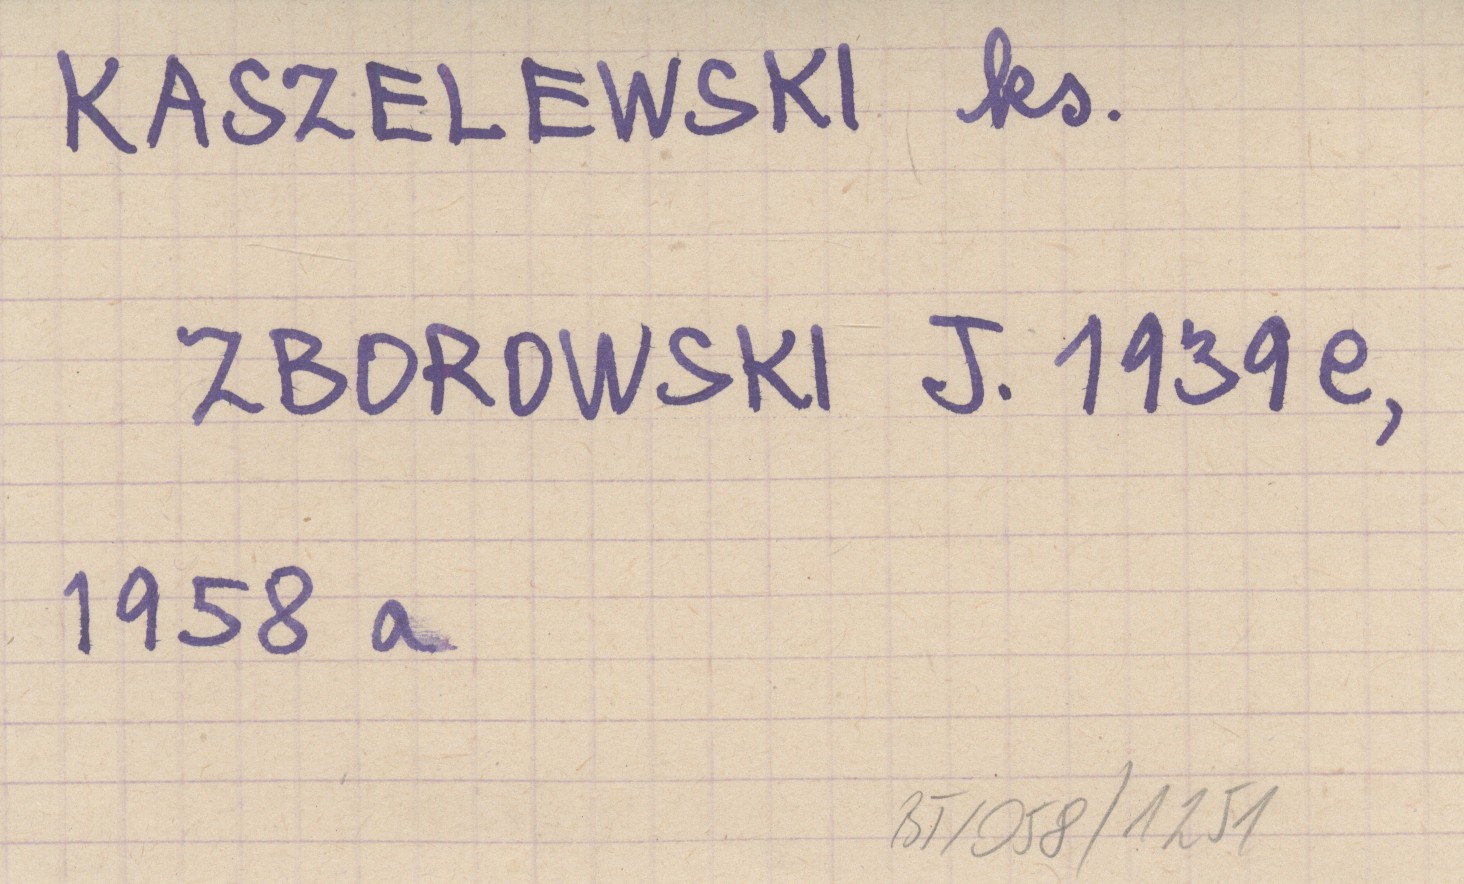 KASZELEWSKI ks.
ZBOROWSKI J. 1939 e,
1958 a
BT/958/1251